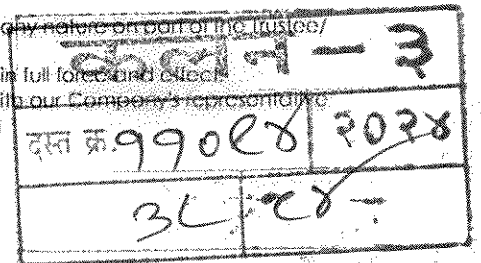 any nature on part of the Trustee/
कलन - ३
in full force and effect
with our Company's representative
दस्त क्र. ११०९४ २०२४
३८ ९४